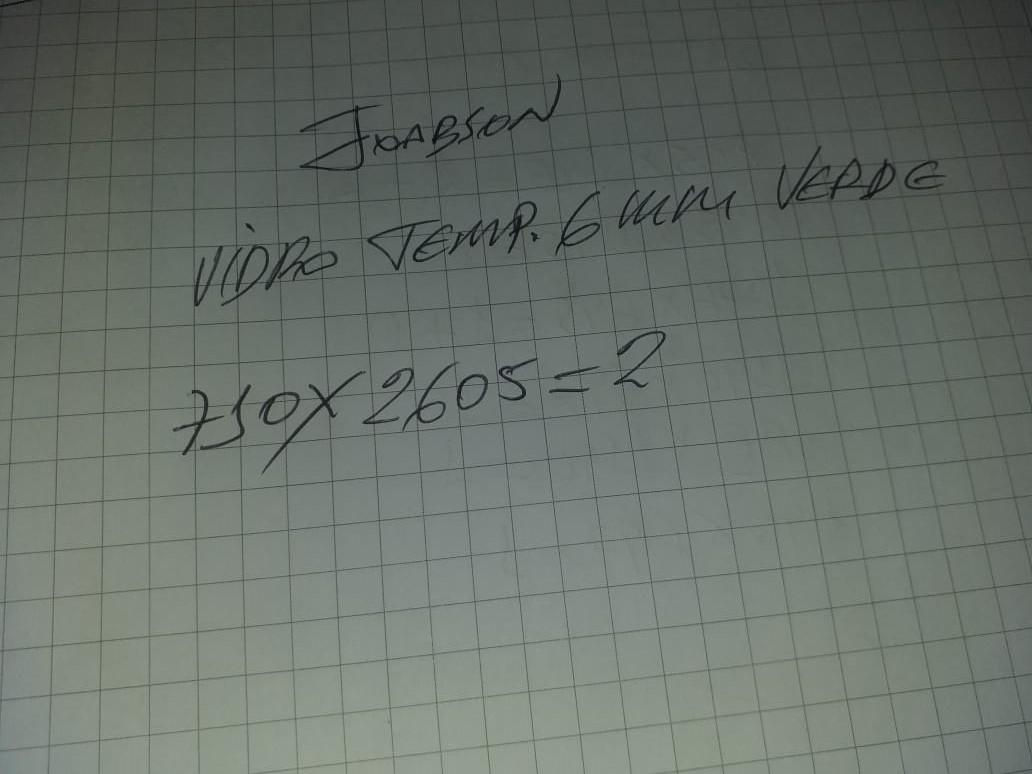 JOABSON
VIDRO TEMP. 6 mm VERDE
750 X 2605 = 2